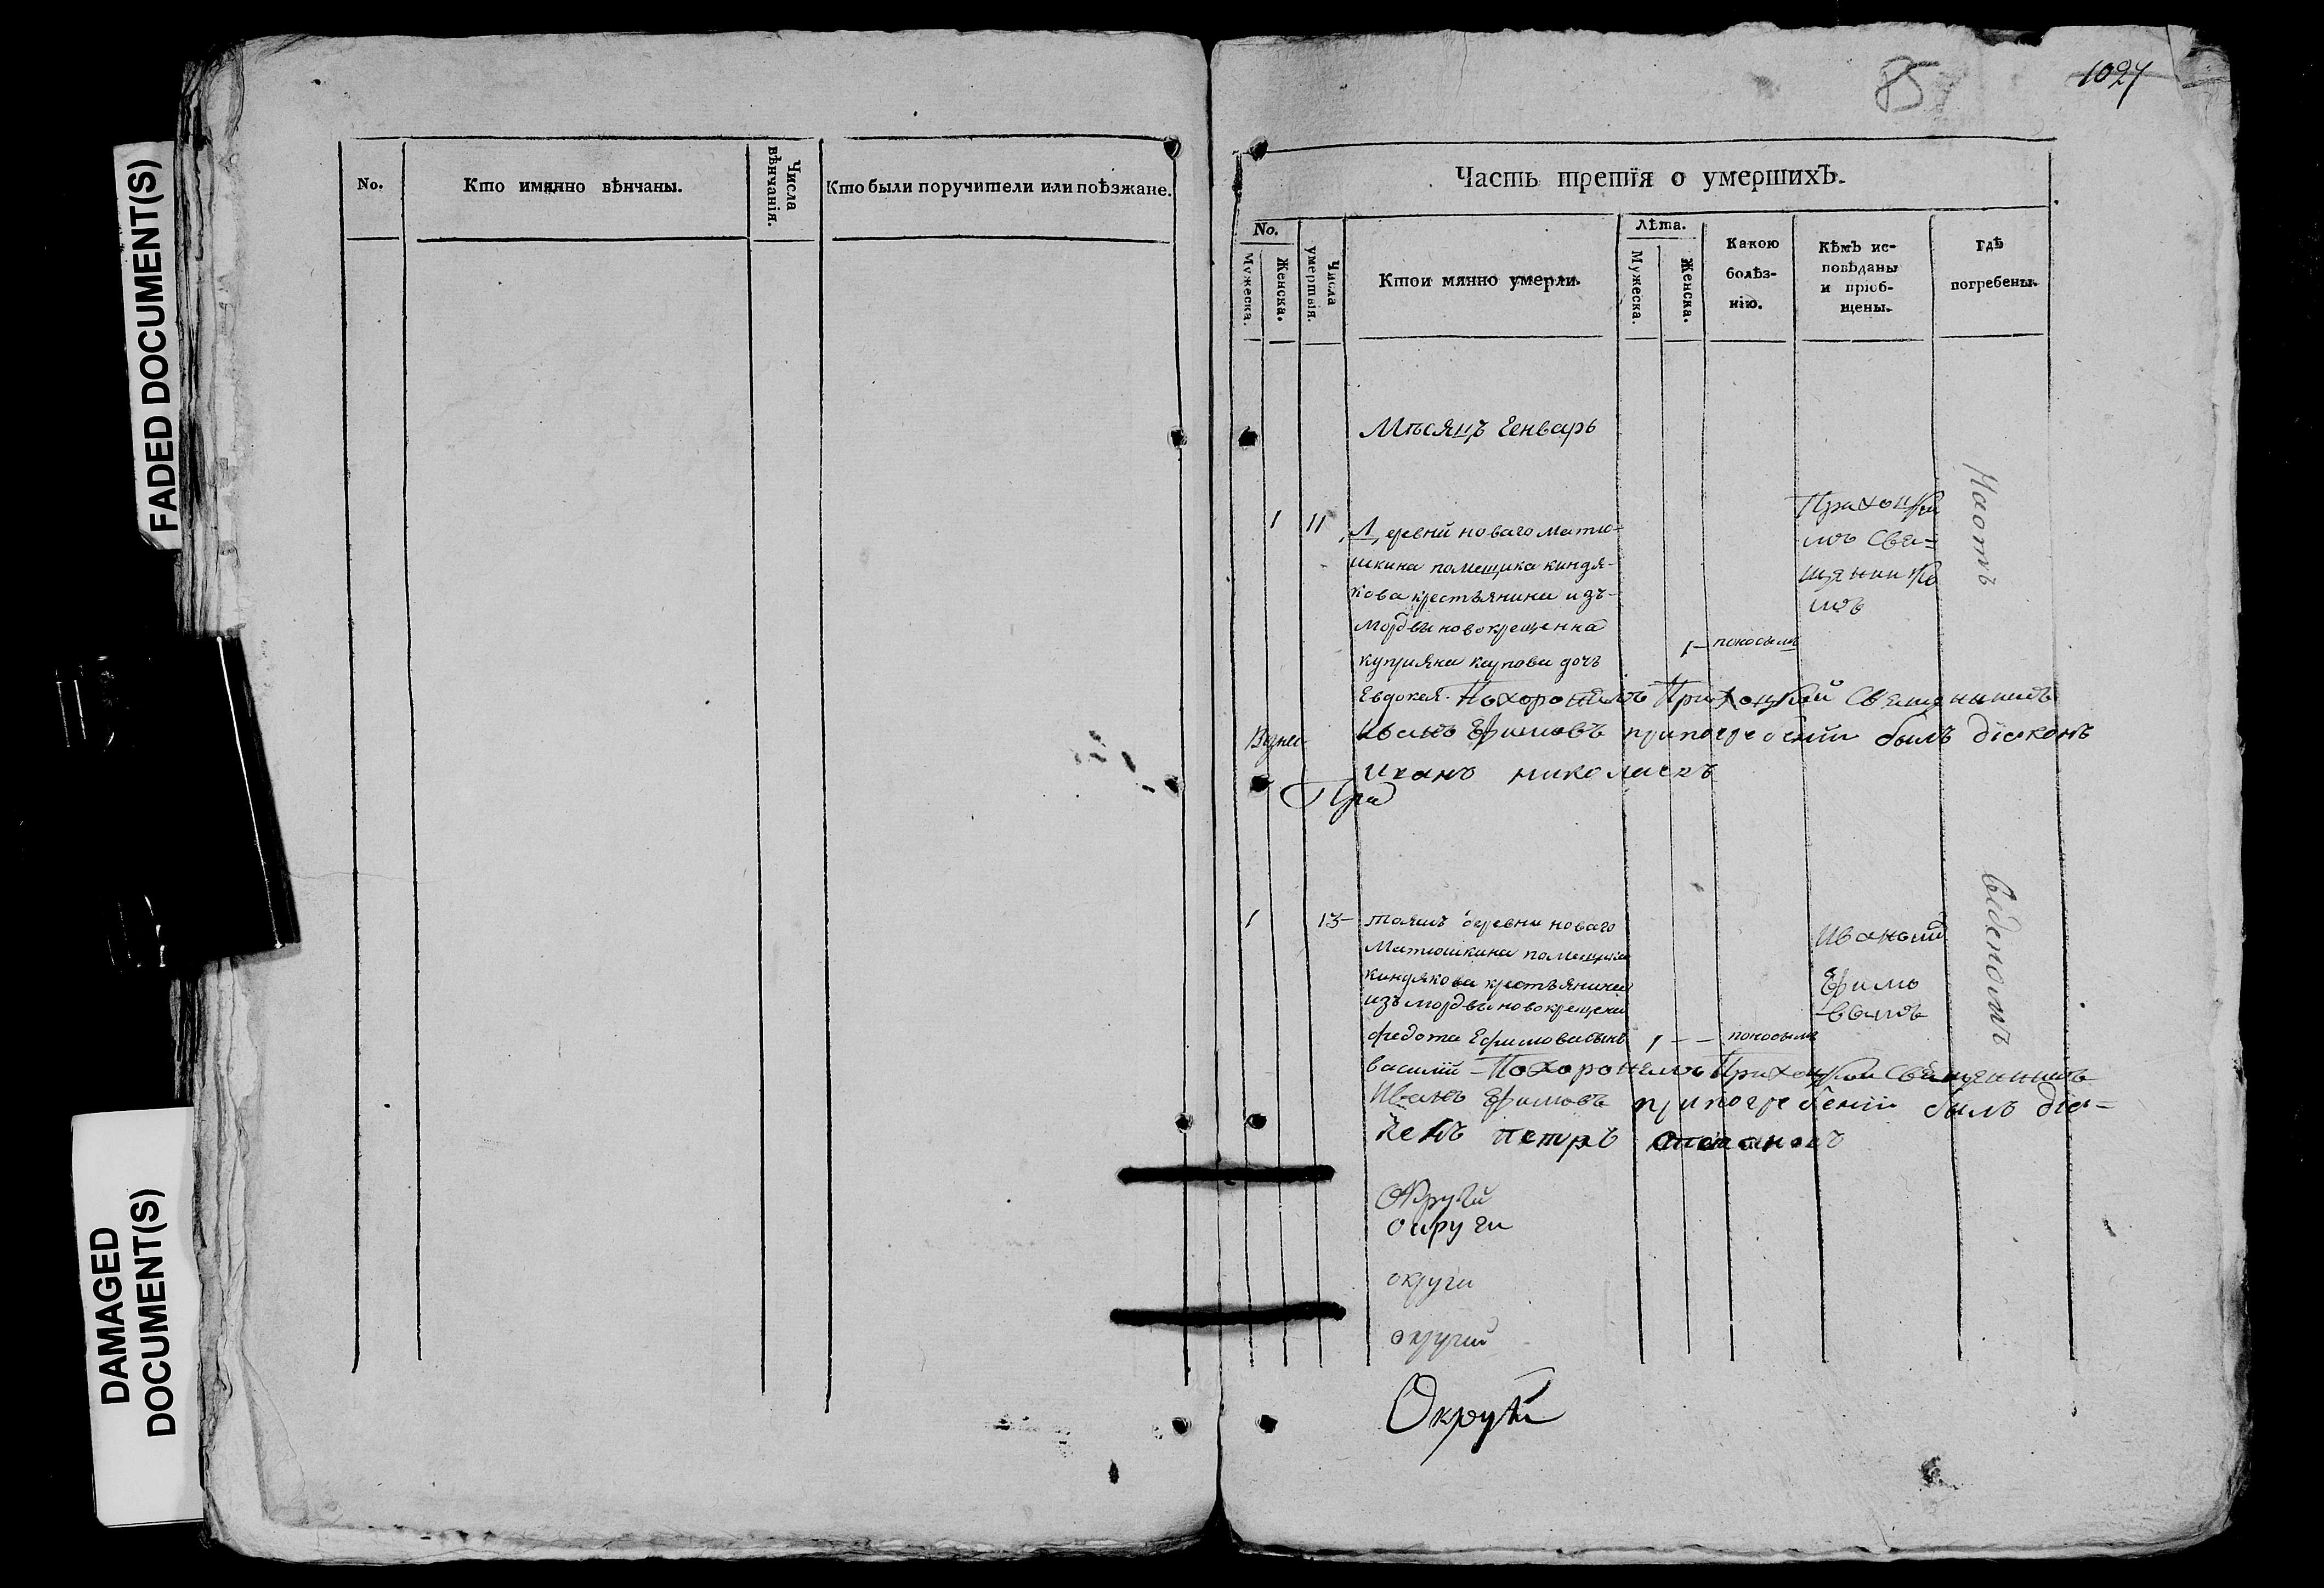 FADED DOCUMENT(S)
DAMAGED
DOCUMENT(S)
No.
Кто имянно вѣнчаны.
Числа
вѣнчанія.
Кто были поручители или поѣзжане.
85
1027
Часть третія о умершихЪ.
No.
Мужеска.
Женска.
Числа
умертвія.
Ктои мянно умерли.
Лѣта.
Мужеска.
Женска.
Какою
болѣз-
нію.
КѢмЪ ис-
повѣданы
и пріоб-
щены.
гдѢ
погребены.
Мѣсяцъ Генварь
1 11
Деревни новаго матю-
шкина помещика киндя-
кова крестьянина изъ-
мордвы новокрещенна
куприяна карпова дочь
1 — поносымъ
Евдокея. Похоронелъ Приходкой Священникъ
Иванъ Ефимовъ припогребении былъ дiяконъ
иванъ николаевъ
При
Приходкой
мъ Свя=
щенико
мъ
На отъ
1 13-
тояжъ деревни новаго
Матюшкина помещика
киндякова крестьянина
изъ мордвы новокрещена
федота Ефимова сынъ 1 — — поносымъ
василий - Похоронелъ Приходкой Священникъ
Иванъ Ефимовъ припогребении былъ дiя=
конъ петръ степановъ
Иваномъ
Ефимо
вымъ
ведепомъ
Округи
округи
округи
округи
Округи